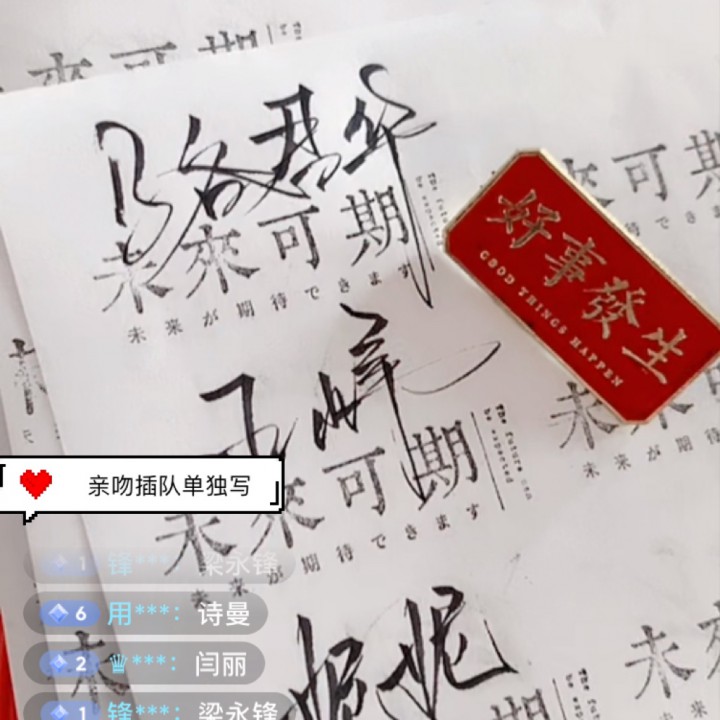 來可期
骆君年
未來可期
未来が期待できます
The future can
be expected
好事發生
GOOD THINGS HAPPEN
来可期
できま
未来が期待
未來可期
未来が期待できます
The future can
be expected
亲吻插队单独写
1 锋***： 梁永锋
6 用***： 诗曼
2 ***： 闫丽
1 锋***： 梁永锋
妮妮
未來